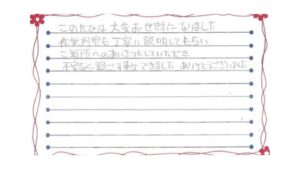 このたびは大変お世話になりました
作業内容も丁寧に説明してもらい
ご近所へのあいさつもしていただき
不安なく過ごす事ができました ありがとうございました